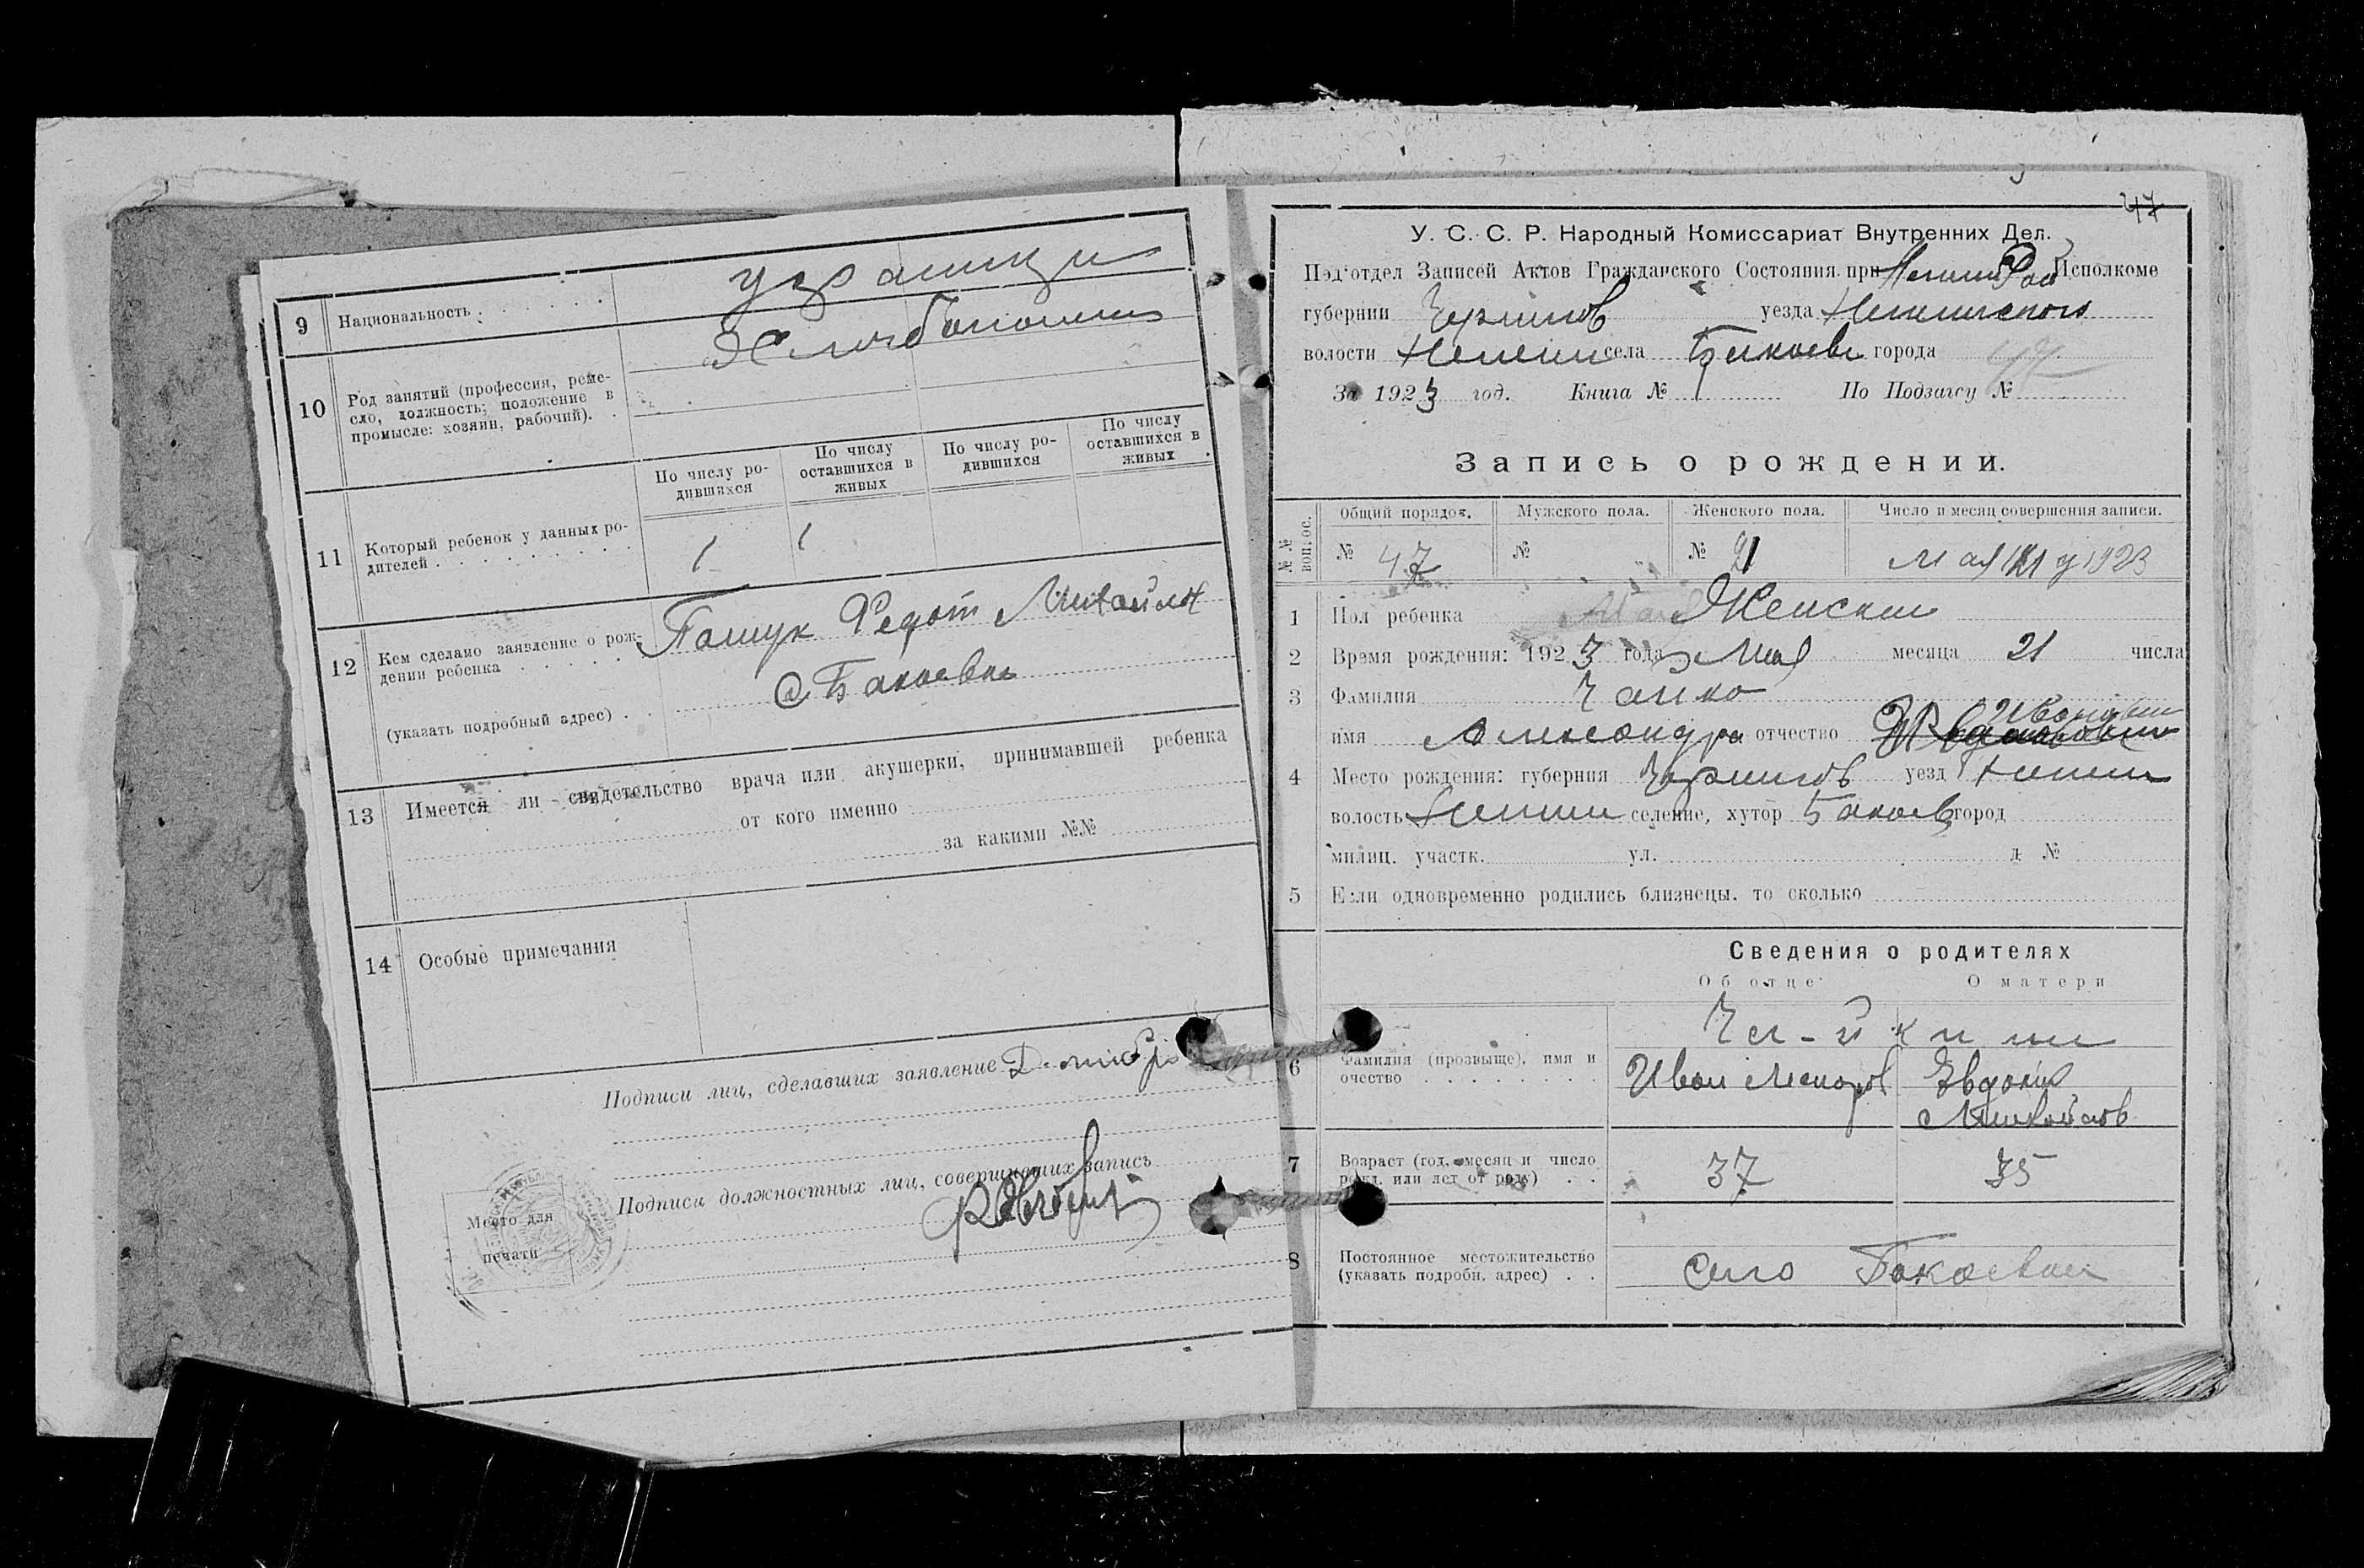 9 Национальность украинци
10 Род занятий (профессия, реме-
сло, должность; положение в
промысле: хозяин, рабочий).
Хлюбопашин
По числу ро-
дившихся
По числу
оставшихся в
живых
По числу ро-
дившихся
По числу
оставшихся в
живых
11 Который ребенок у данных ро-
дителей
1 1
12 Кем сделано заявление о рож-
дении ребенка
Пашук Федот Михайл
(указать подробный адрес)
С Бакаевка
13 Имеется ли свидетельство врача или акушерки, принимавшей ребенка
от кого именно
за какими №№
14 Особые примечания
Подписи лиц, сделавших заявление
Подписи должностных лиц, совершивших запись
Место для
печати
47
У. С. С. Р. Народный Комиссариат Внутренних Дел.
Под'отдел Записей Актов Гражданского Состояния при Исполкоме
губернии Чернигов уезда
волости Нежин села города
За 1923 год. Книга № 1 По Подзагсу № 47
Запись о рождении.
№№ воп. ос.
Общий порядок. Мужского пола. Женского пола. Число и месяц совершения записи.
№ 47 № № 21 Мая 21 д 1923
1 Пол ребенка Женский
2 Время рождения: 1923 года Мая месяца 21 числа
3 Фамилия Чайко
имя Александра отчество Ивановна
4 Место рождения: губерния Чернигов уезд Нежин
волость Нежин селение, хутор Бакаев город
милиц. участк. ул. д №
5 Если одновременно родились близнецы, то сколько
Сведения о родителях
Об отце О матери
Ча-й к и
6 Фамилия (прозвище), имя и
очество
Иван Евдокия
7 Возраст (год, месяц и число
рожд. или лет от роду)
37 35
8 Постоянное местожительство
(указать подробн. адрес)
село Бакаевка